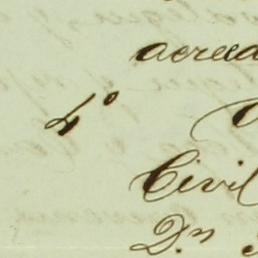 acreed
4°
Civil
Dn